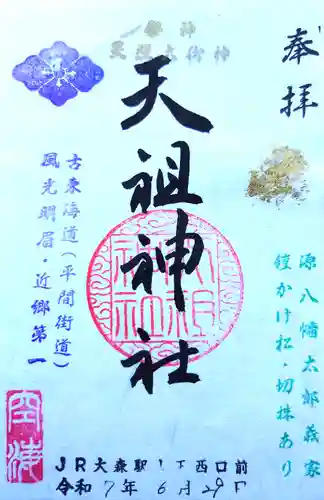 奉拝
祭神
天照大御神
天祖神社
古東海道(平間街道)
風光明眉・近郷第一
源八幡太郎義家
鎧かけ松・切株あり
JR大森駅 西口前
令和7年6月29日